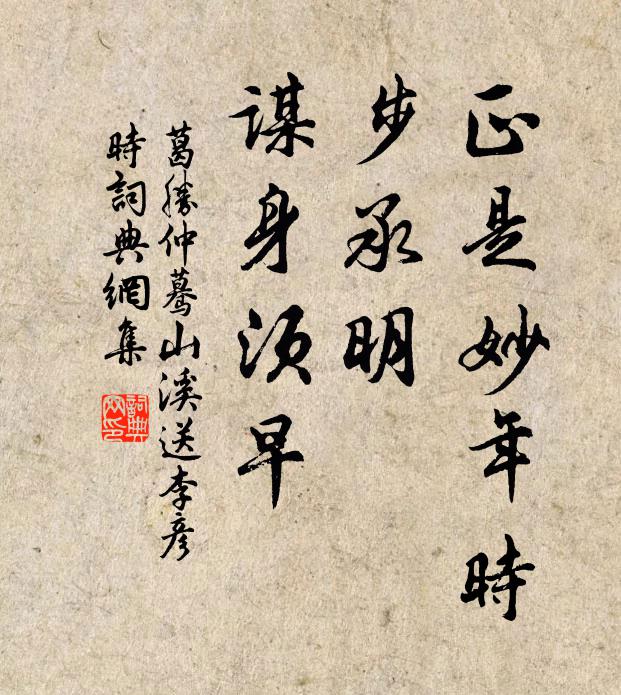 正是妙年時
步承明
謀身須早
葛勝仲驀山溪送李彥
時詞典網集
詞典
网印